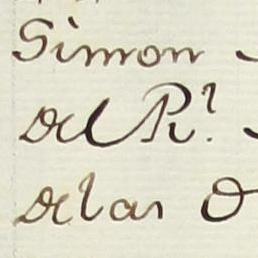 Simon
del R.l
delas O